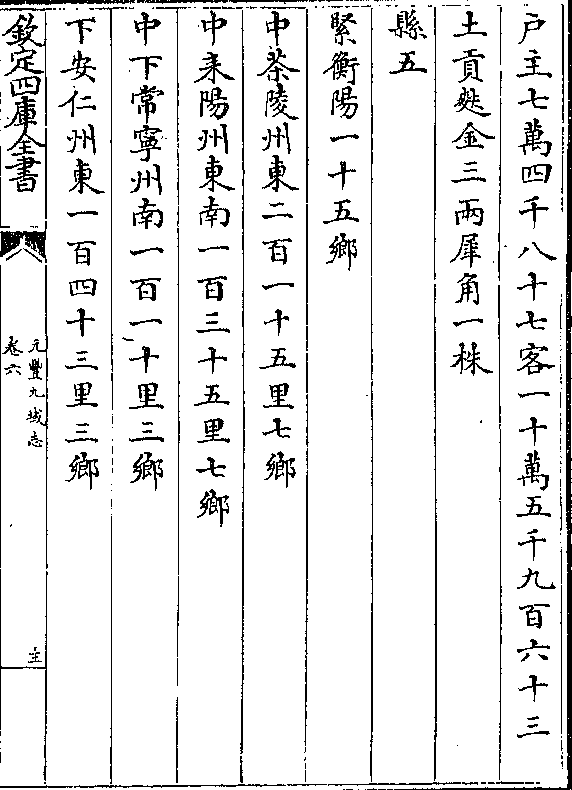 户主七萬四千八十七客一十萬五千九百六十三
土貢麩金三兩犀角一株
縣五
緊衡陽一十五鄉
中茶陵州東二百一十五里七鄉
中耒陽州東南一百三十五里七鄉
中下常寧州南一百一十里三鄉
下安仁州東一百四十三里三鄉
欽定四庫全書
元豐九域志
卷六